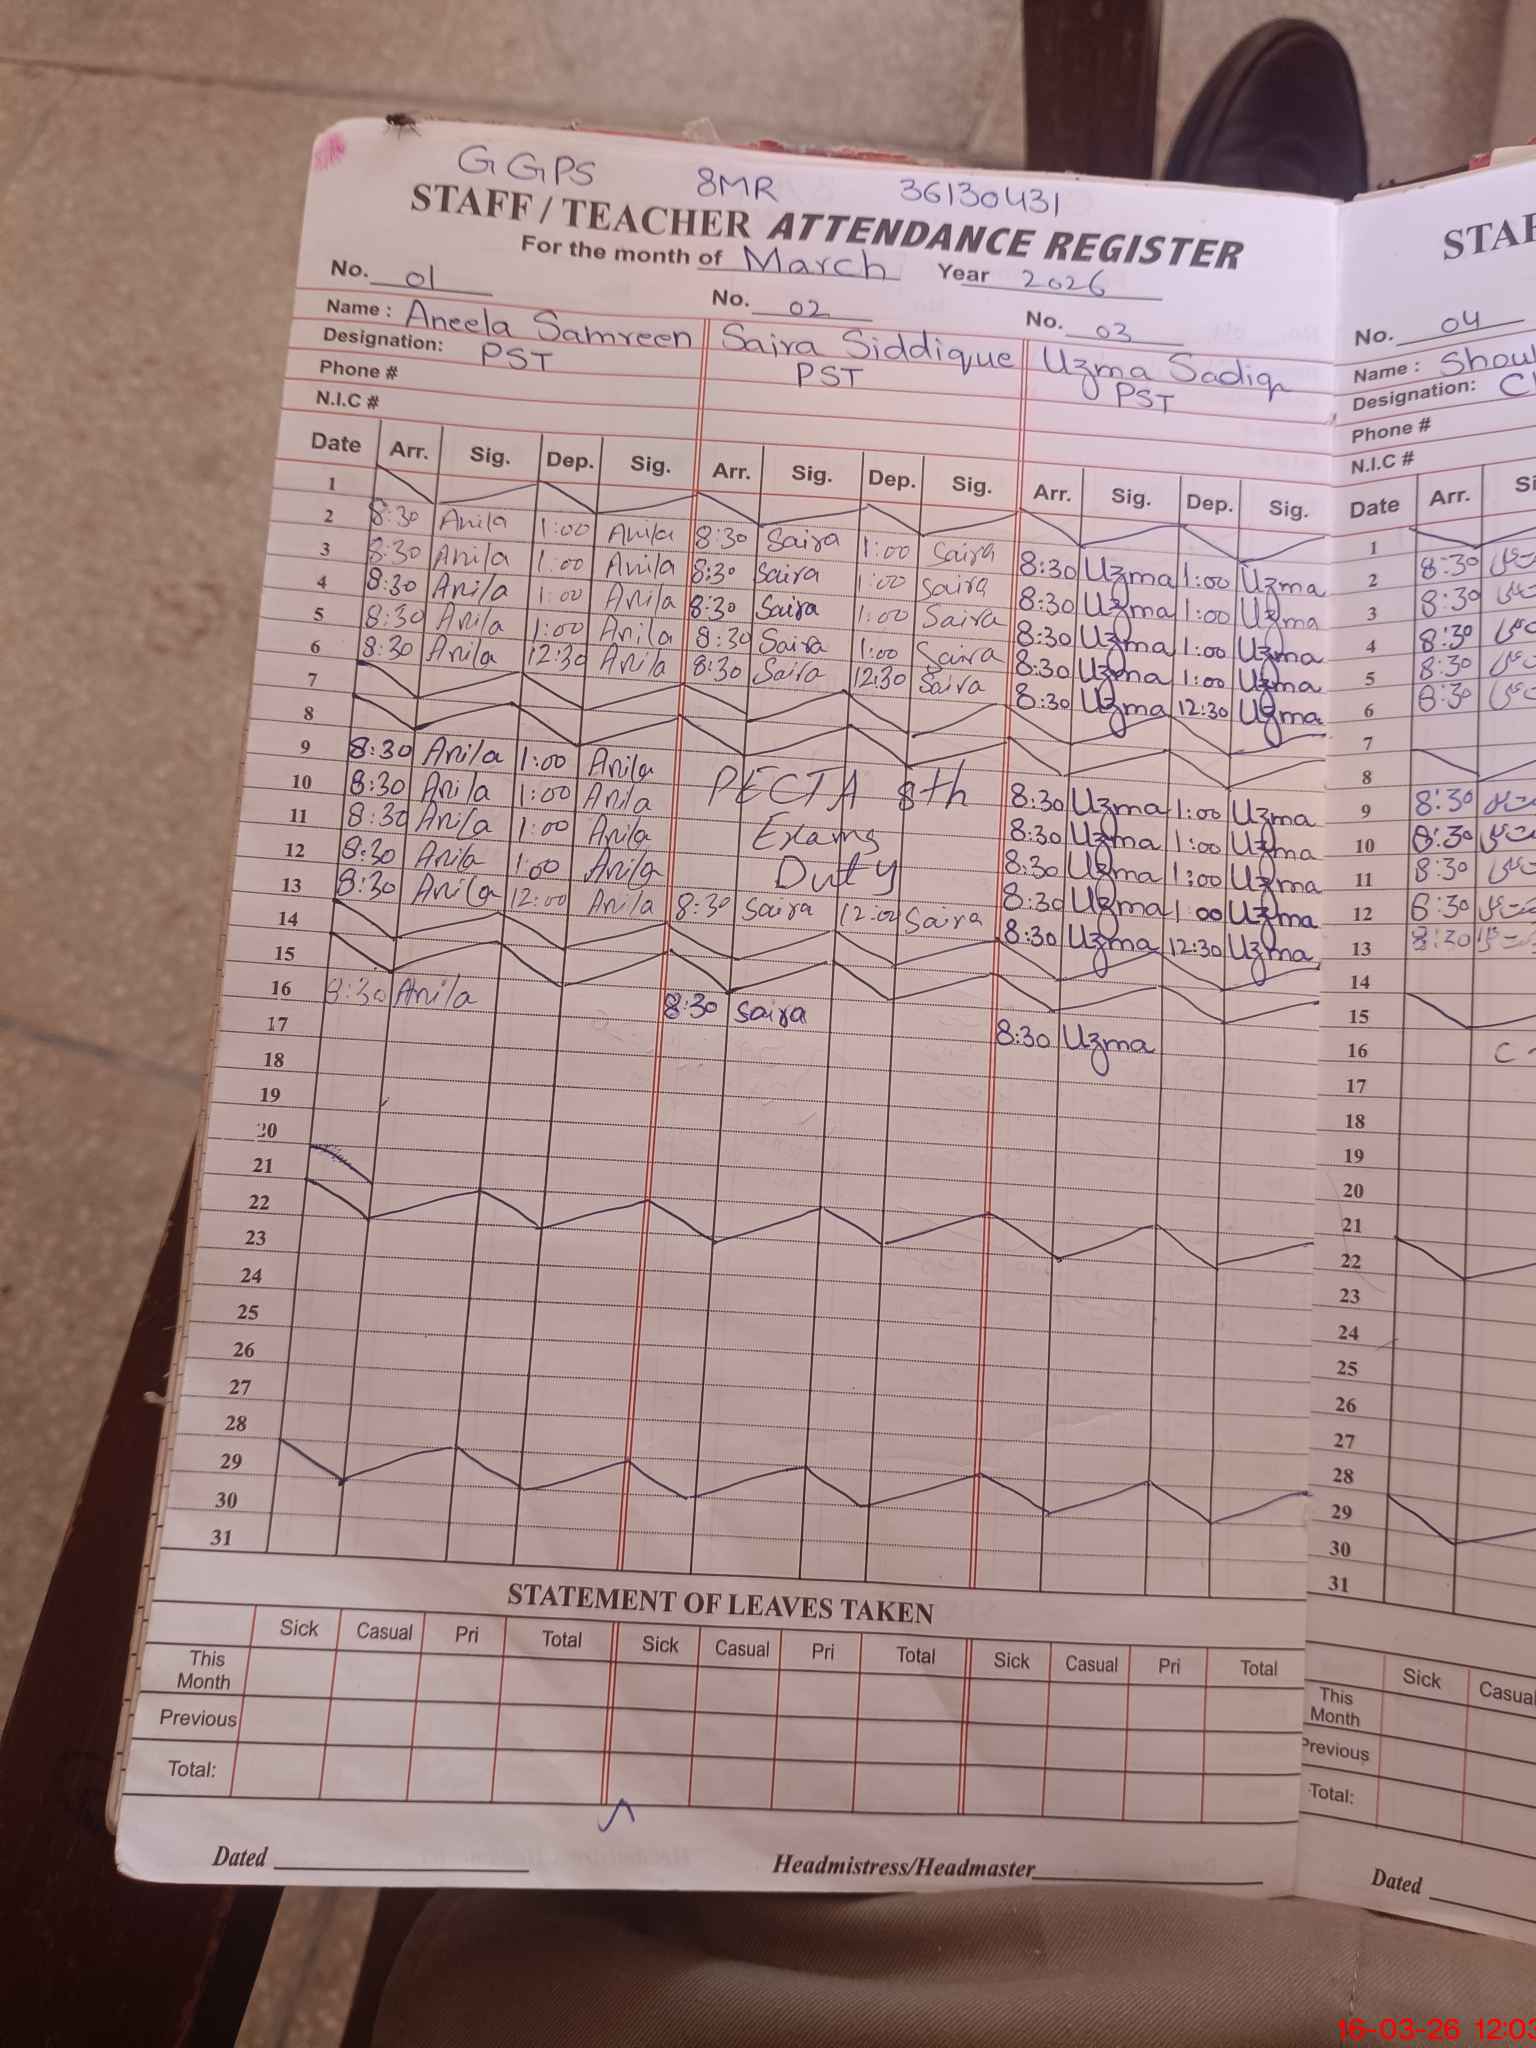 GGPS 8MR 36130431
STAFF / TEACHER ATTENDANCE REGISTER
For the month of March Year 2026
No. 01 No. 02 No. 03
Name : Aneela Samreen Saira Siddique Uzma Sadiq
Designation: PST PST PST
Phone #
N.I.C #
Date Arr. Sig. Dep. Sig. Arr. Sig. Dep. Sig. Arr. Sig. Dep. Sig.
1
2 8:30 Anila 1:00 Anila 8:30 Saira 1:00 Saira 8:30 Uzma 1:00 Uzma
3 8:30 Anila 1:00 Anila 8:30 Saira 1:00 Saira 8:30 Uzma 1:00 Uzma
4 8:30 Anila 1:00 Anila 8:30 Saira 1:00 Saira 8:30 Uzma 1:00 Uzma
5 8:30 Anila 1:00 Anila 8:30 Saira 1:00 Saira 8:30 Uzma 1:00 Uzma
6 8:30 Anila 12:30 Anila 8:30 Saira 12:30 Saira 8:30 Uzma 12:30 Uzma
7
8
9 8:30 Anila 1:00 Anila PECTA 8th 8:30 Uzma 1:00 Uzma
10 8:30 Anila 1:00 Anila Exams 8:30 Uzma 1:00 Uzma
11 8:30 Anila 1:00 Anila Duty 8:30 Uzma 1:00 Uzma
12 8:30 Anila 1:00 Anila 8:30 Uzma 1:00 Uzma
13 8:30 Anila 12:00 Anila 8:30 Saira 12:00 Saira 8:30 Uzma 12:30 Uzma
14
15
16 8:30 Anila 8:30 Saira 8:30 Uzma
17
18
19
20
21
22
23
24
25
26
27
28
29
30
31
STATEMENT OF LEAVES TAKEN
Sick Casual Pri Total Sick Casual Pri Total Sick Casual Pri Total
This Month
Previous
Total:
Dated Headmistress/Headmaster
No. 04
Name :
Designation:
Phone #
N.I.C #
Date Arr.
1
2 8:30
3 8:30
4 8:30
5 8:30
6 8:30
7
8
9 8:30
10 8:30
11 8:30
12 8:30
13 8:30
14
15
16
17
18
19
20
21
22
23
24
25
26
27
28
29
30
31
Sick Casual
This Month
Previous
Total:
Dated
16-03-26 12:03